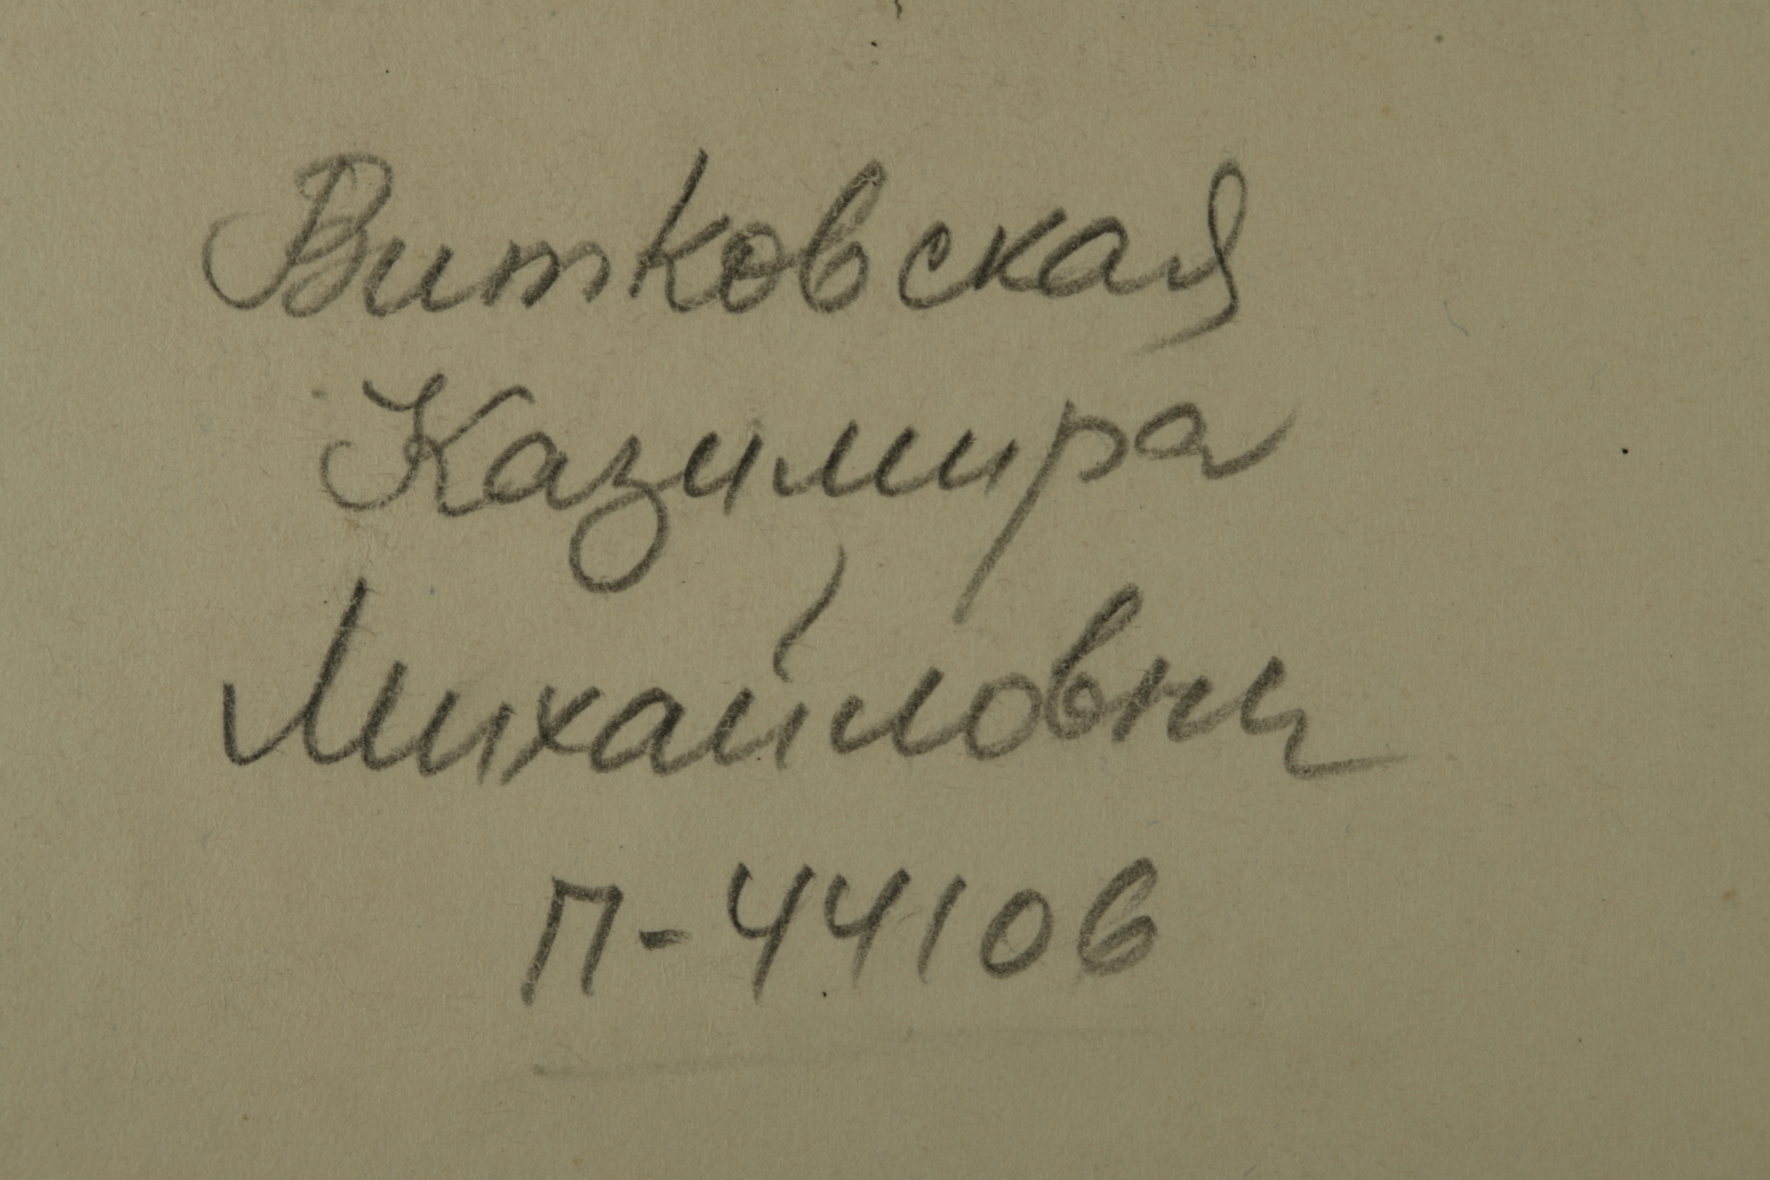 Витковская
Казимира
Михайловна
П-44106